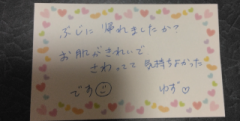 ぶじに 帰れましたか?
お肌がきれいで
さわってて 気持ちよかった
です☺ ゆず♡